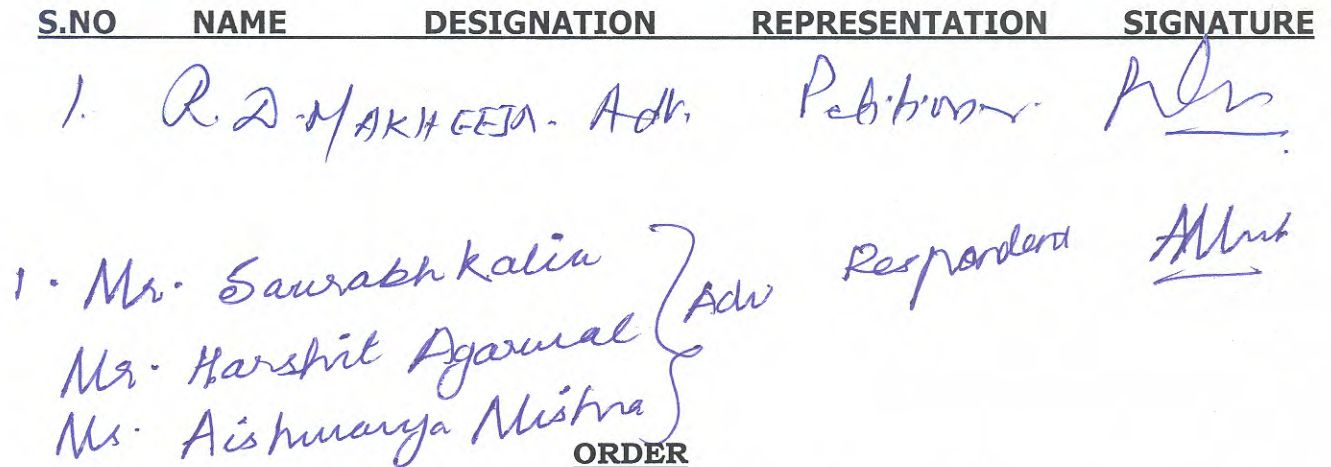 S.NO NAME DESIGNATION REPRESENTATION SIGNATURE
1. R.D. MAKHEEJA. Adv. Petitioner.
1. Mr. Saurabh Kalia } Adv Respondent
Mr. Harshit Agarwal
Ms. Aishwarya Mishra
ORDER